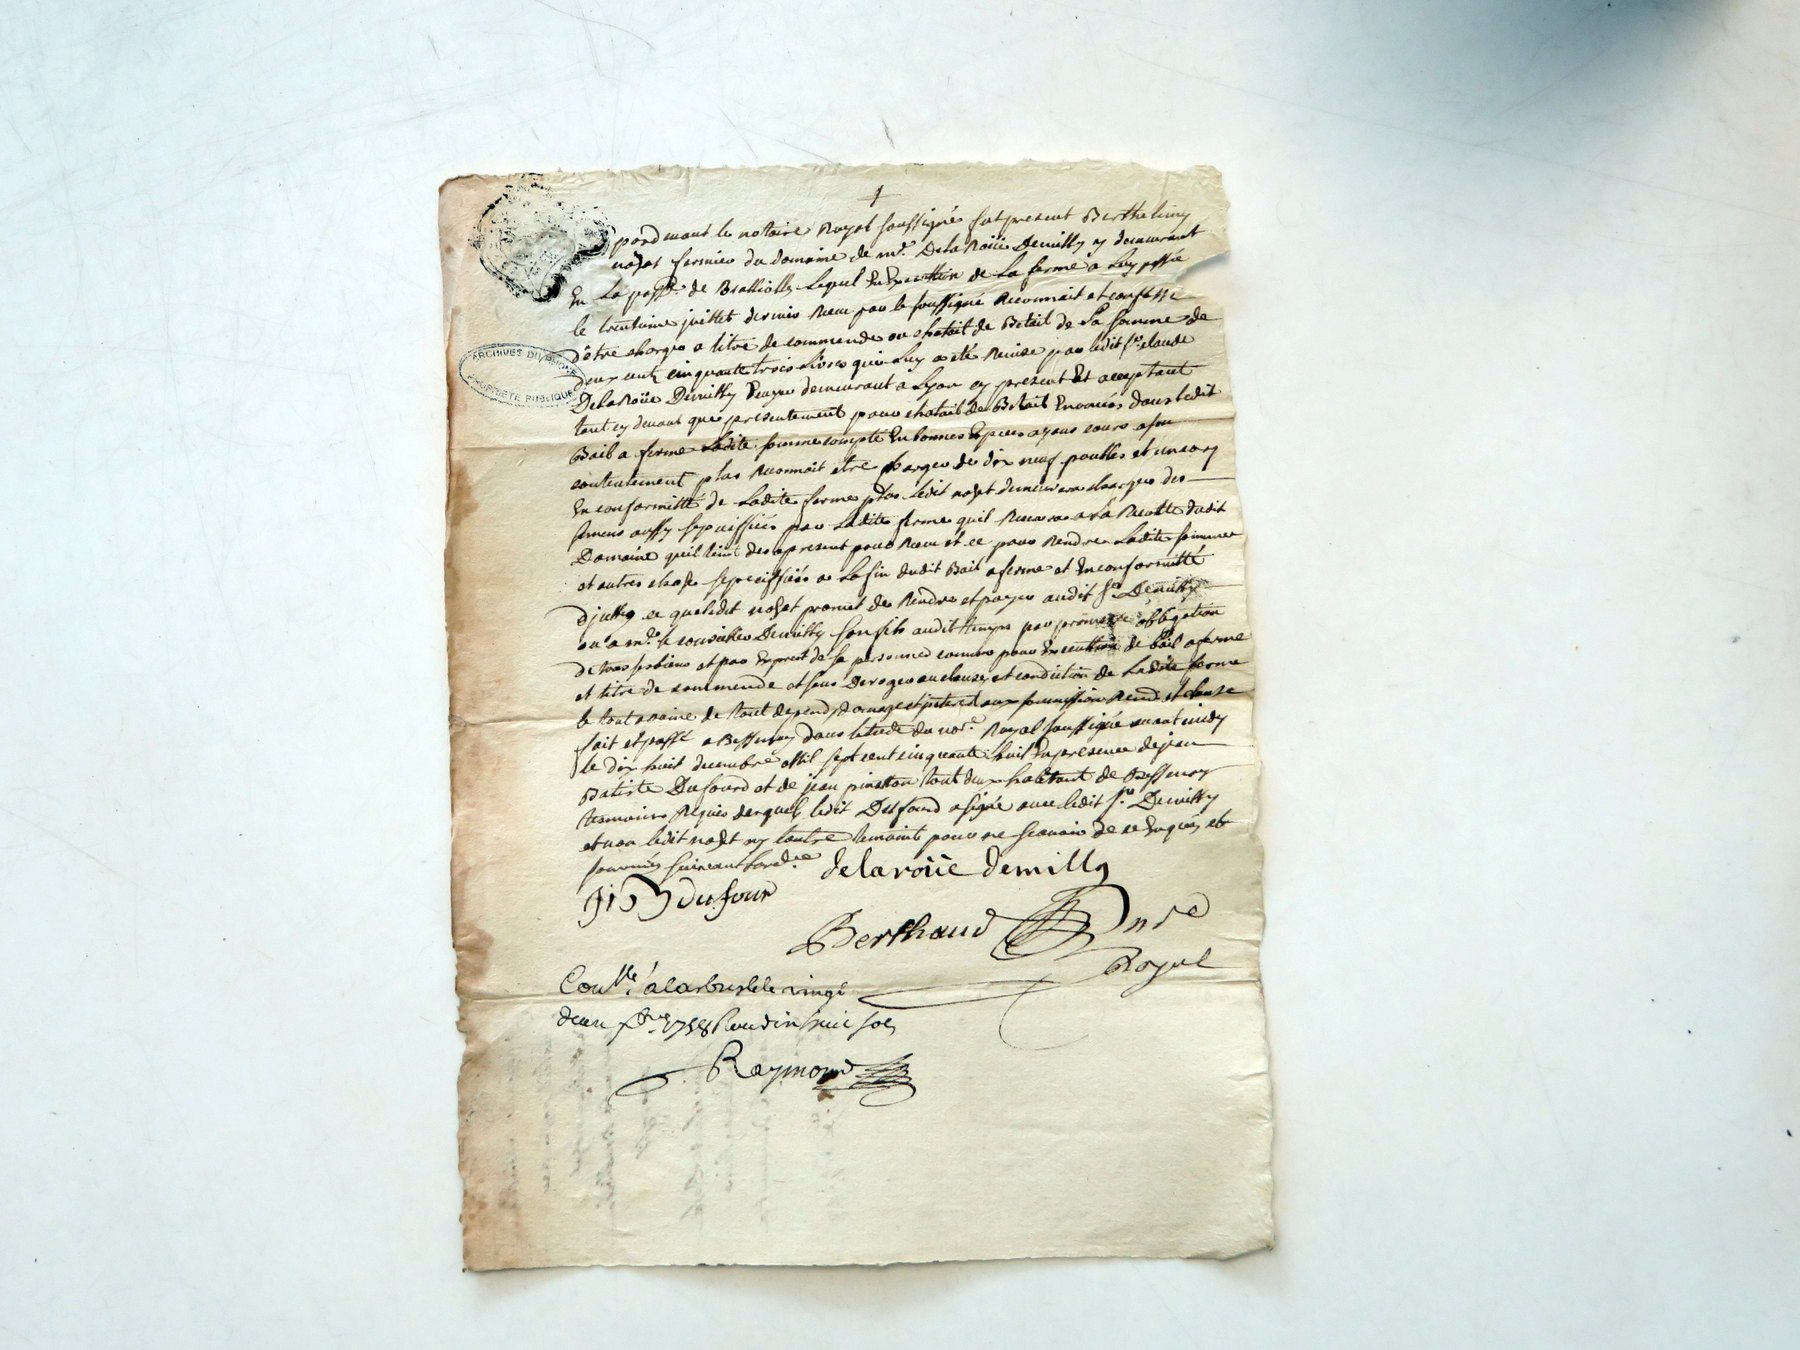 ARCHIVES DU RHONE
PROPRIÉTÉ PUBLIQUE
pardevant le notaire Royal soussigné fut present Berthelemy
fermier du domaine de mr. Delaroüe Demilly y demeurant
En La parse. de Lequel En Execution de La ferme a Luy passée
le trentieme juillet dernier Receu par le soussigné Reconnoit et confesse
d'être chargé a titre de commende ou chatail de Bétail de La somme de
deux cent cinquante trois Livres qui Luy a été Remise par ledit sr. claude
Delaroüe Demilly Ecuyer demeurant a Lyon cy present Et acceptant
tant cy devant que presentement pour chatail de Bétail Enoncés dans ledit
Bail a ferme Ladite somme compté En bonnes Especes ayans cours a son
contentement plus Reconnoit etre chargé de dix neuf poulles et un coq
En conformitté de Ladite ferme plus Ledit demeurera chargés des
semens aussy specifiées par Ladite ferme qu'il a La Recolte dudit
Domaine qu'il tient des apresent pour Receu et ce pour Rendre Ladite somme
et autres chose specifiées a La fin dudit Bail a ferme et En conformitté
ce que ledit promet de Rendre et payer audit sr. Demilly
ou a mr. le Demilly son fils audit temps par promesse obligation
de tous ses biens et par Exprest de sa personne comme pour Execution de bail a ferme
et titre de commende et sans Deroger au clauses et condition de Ladite ferme
le tout a peine de tout depend domage et interest aux soumission Rend et clause
fait et passé a Bessenay dans letude du nore. Royal soussigné avant midy
le dix huit decembre Mil sept cent cinquante huit En presence de jean
Batiste Dufour et de jean tout deux habitant de Bessenay
temoins Requis desquels ledit Dufour a signé avec ledit sr. Demilly
et non ledit ny lautre temoint pour ne scavoir de ce Enquis et
sommés suivant lordce
delaroüe demilly
J B dufour
Berthaud nre
Royal
Conlle. a larbresle le vingt
deux xbre 1758 Reçu dix huit sols
Raymond